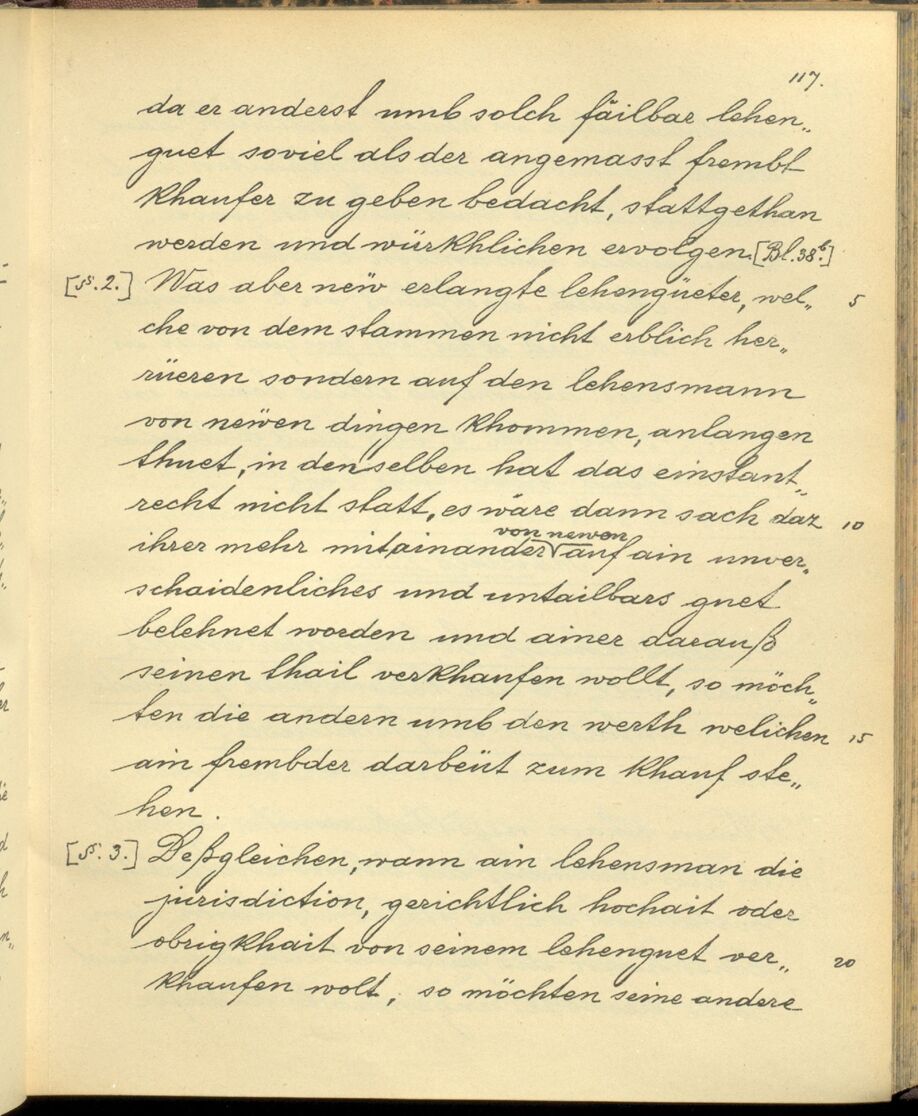 117.
da er anderst umb solch fäilbar lehen„
guet soviel als der angemasst frembt
khaufer zu geben bedacht, stattgethan
werden und würkhlichen ervolgen. [Bl. 38b.]
[§. 2.] Was aber neẅ erlangte lehengüeter, wel„ 5
che von dem stammen nicht erblich her„
rüeren sondern auf den lehensmann
von neẅen dingen khommen, anlangen
thuet, in denselben hat das einstant„
recht nicht statt, es wäre dann sach daz 10
von newen
ihrer mehr mitainander √ auf ain unver„
schaidenliches und untailbars guet
belehnet worden und ainer darauß
seinen thail verkhaufen wollt, so möch„
ten die andern umb den werth welichen 15
ain frembder darbeüt zum khauf ste„
hen.
[§. 3.] Deßgleichen, wann ain lehensman die
jurisdiction, gerichtlich hochait oder
obrigkhait von seinem lehenguet ver„ 20
khaufen wolt, so möchten seine andere